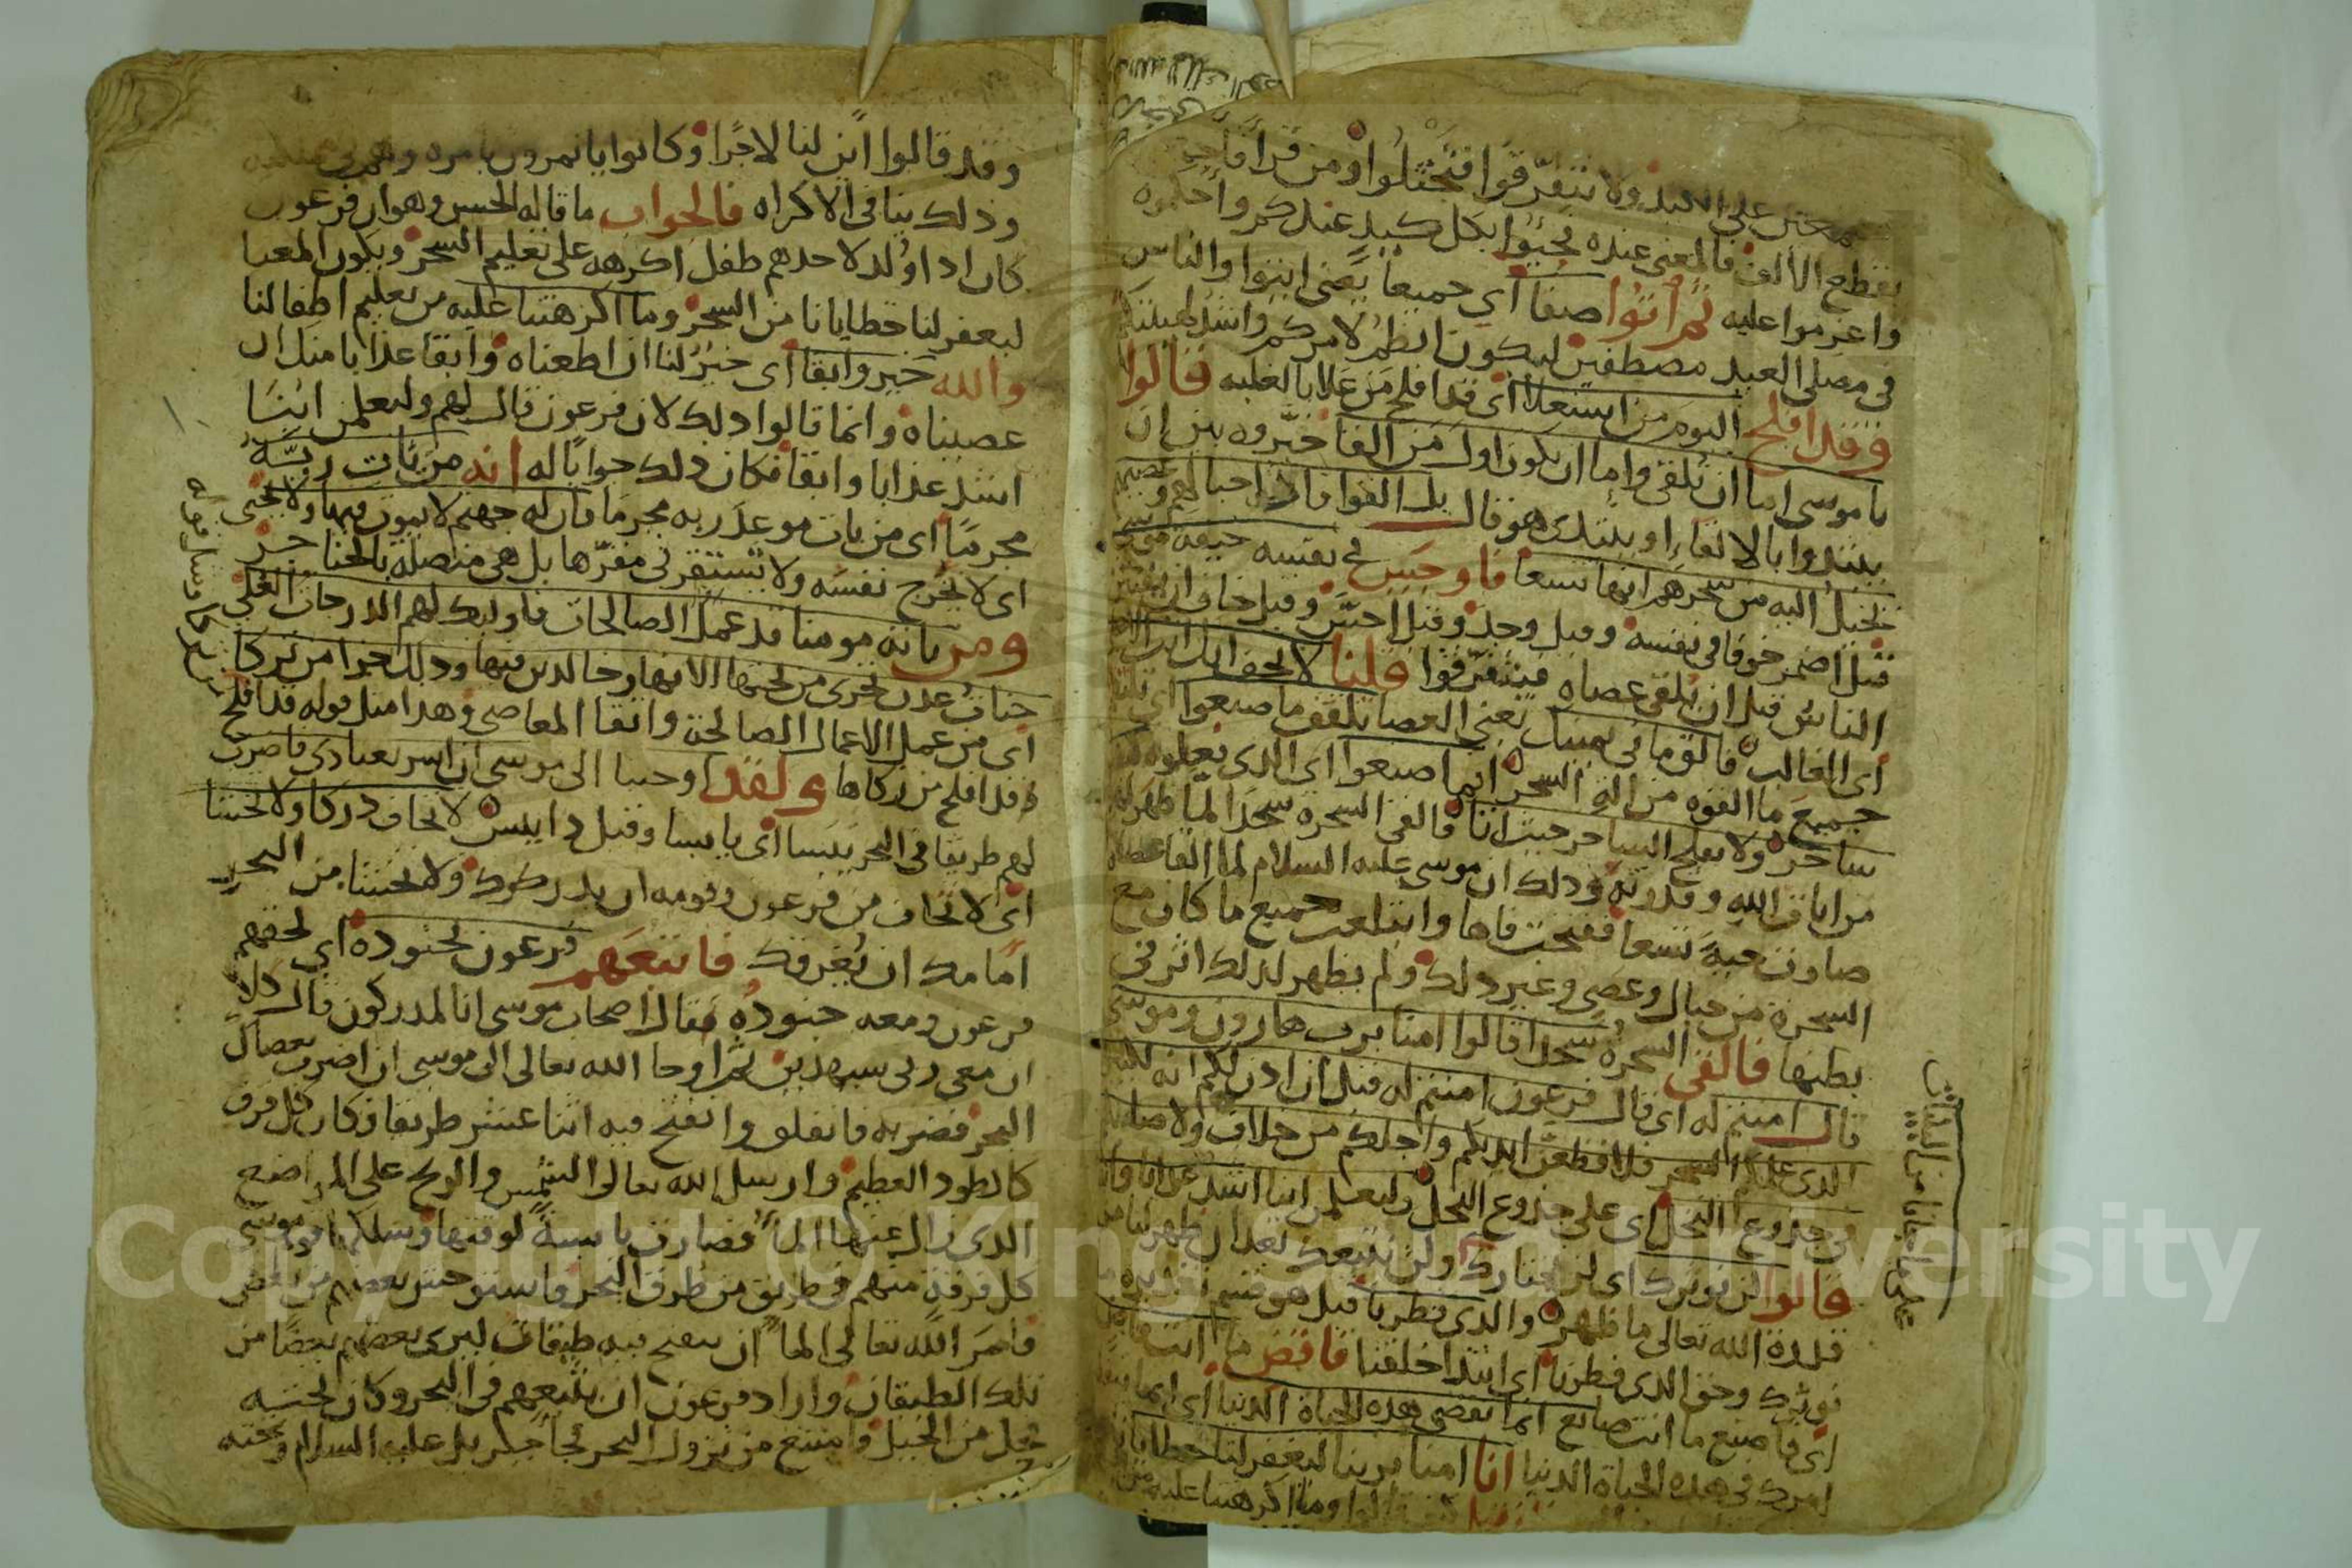 مجتمعين على الكيد ولا تتفرقوا فتختلوا ومن قرأ فاجمـ
بقطع الألف فالمعنى عنده نجيوا بكل كيد عندكم واحكموه
واعزموا عليه ثم اتوا صفا اي جميعا يعني ايتوا والناس
في مصلى العيد مصطفين ليكون انظم لامركم واشد لهيبتكم
وقد افلح اليوم من استعلا اي قد افلح من علا بالغلبه قالوا
يا موسى اما ان تلقى واما ان نكون اول من القا خيروه بين ان
يبتدوا بالالقاء او يبتدى هو قال بل القوا فاذا حبالهم وعصيهم
تخيل اليه من سحرهم انها تسعا فاوجس في نفسه خيفة موسى
قيل اضمر خوفا في نفسه وقيل وجد وقيل احس وقيل خاف ان يفتتن
الناس قبل ان يلقى عصاه فيتفرقوا قلنا لا تخف انك انت الاعلا
اي الغالب فالق ما في يمينك يعني العصا تلقف ما صنعوا اي تلتقم
جميع ما القوه من اله السحر انما صنعوا اي الذي فعلوه كيد
ساحر ولا يفلح الساحر حيث اتا فالقى السحره سجدا لما ظهر لهم
من ايات الله وقدرته وذلك ان موسى عليه السلام لما القا عصاه
صارت حية تسعا ففتحت فاها وابتلعت جميع ما كان مع
السحرة من حبال وعصى وغير ذلك ولم يظهر لذلك اثر في
بطنها فالقى السحرة سجدا قالوا امنا برب هارون وموسى
قال امنتم له اي قال فرعون امنتم له قبل ان اذن لكم انه لكبيركم
الذي علمكم السحر فلاقطعن ايديكم وارجلكم من خلاف ولاصلبنكم
في جذوع النخل اي على جذوع النخل ولتعلمن اينا اشد عذابا وابقا
قالوا لن نوثرك اي لن نختارك ولن نتبعك بعد ان ظهر لنا من
قدرة الله تعالى ما ظهر والذي فطرنا قيل هو قسم
نوثرك وحق الذي فطرنا اي ابتدا خلقنا فاقض ما انت قاض
اي فاصنع ما انت صانع انما تقضي هذه الحياة الدنيا اي انما
امرك في هذه الحياة الدنيا انا امنا بربنا ليغفر لنا خطايانا
قالوا وما اكرهتنا عليه من
علمنا خلافا من البينات
وقد قالوا اين لنا لاجرا وكانوا ياتمرون بامره
وذلك ينافي الاكراه فالجواب ما قاله الحسن وهو ان فرعون
كان اذا ولد لاحدهم طفل اكرهه على تعليم السحر ويكون المعنا
ليغفر لنا خطايانا من السحر وما اكرهتنا عليه من تعليم اطفالنا
والله خير وابقا اي خير لنا ان اطعناه وابقا عذابا منك ان
عصيناه وانما قالوا ذلك لان فرعون قال لهم ولتعلمن اينا
اشد عذابا وابقا فكان ذلك جوابا له انه من يات ربه
مجرما اي من يات موعد ربه مجرما فان له جهنم لا يموت فيها ولا يحيى
اي لا تخرج نفسه ولا تستقر في مقرها بل هي متصلة بالحناجر
ومن ياته مومنا قد عمل الصالحات فاوليك لهم الدرجات العلى
جنات عدن تجرى من تحتها الانهار خالدين فيها وذلك جزا من تزكا
اي من عمل الاعمال الصالحة واتقا المعاصي وهذا مثل قوله قد افلح
قد افلح من زكاها ولقد اوحينا الى موسى ان اسر بعبادي فاضرب
لهم طريقا في البحر يبسا اي يابسا وقيل ذا يبس لا تخاف دركا ولا تخشا
اي لا تخاف من فرعون وقومه ان يدركوك ولا تخشا من البحر
امامك ان يغرقك فاتبعهم فرعون بجنوده اي لحقهم
فرعون ومعه جنوده فقال اصحاب موسى انا لمدركون قال كلا
ان معي ربي سيهدين ثم اوحا الله تعالى الى موسى ان اضرب بعصاك
البحر فضربه فانفلق وانفتح فيه اثنا عشر طريقا فكان كل فرق
كالطود العظيم وارسل الله تعالى الشمس والريح على المواضع
الذي زال عنها الما فصارت يابسة لوقتها وسلك قوم موسى
كل فرقة منهم في طريق من طرق البحر فاستوحش بعضهم من بعض
فامر الله تعالى الما ان ينفتح فيه طبقات ليرى بعضهم بعضا من
تلك الطبقات واراد فرعون ان يتبعهم في البحر وكان تحته
فحل من الخيل فامتنع من نزول البحر فجا جبريل عليه السلام وتحته
Copyright © King Saud University